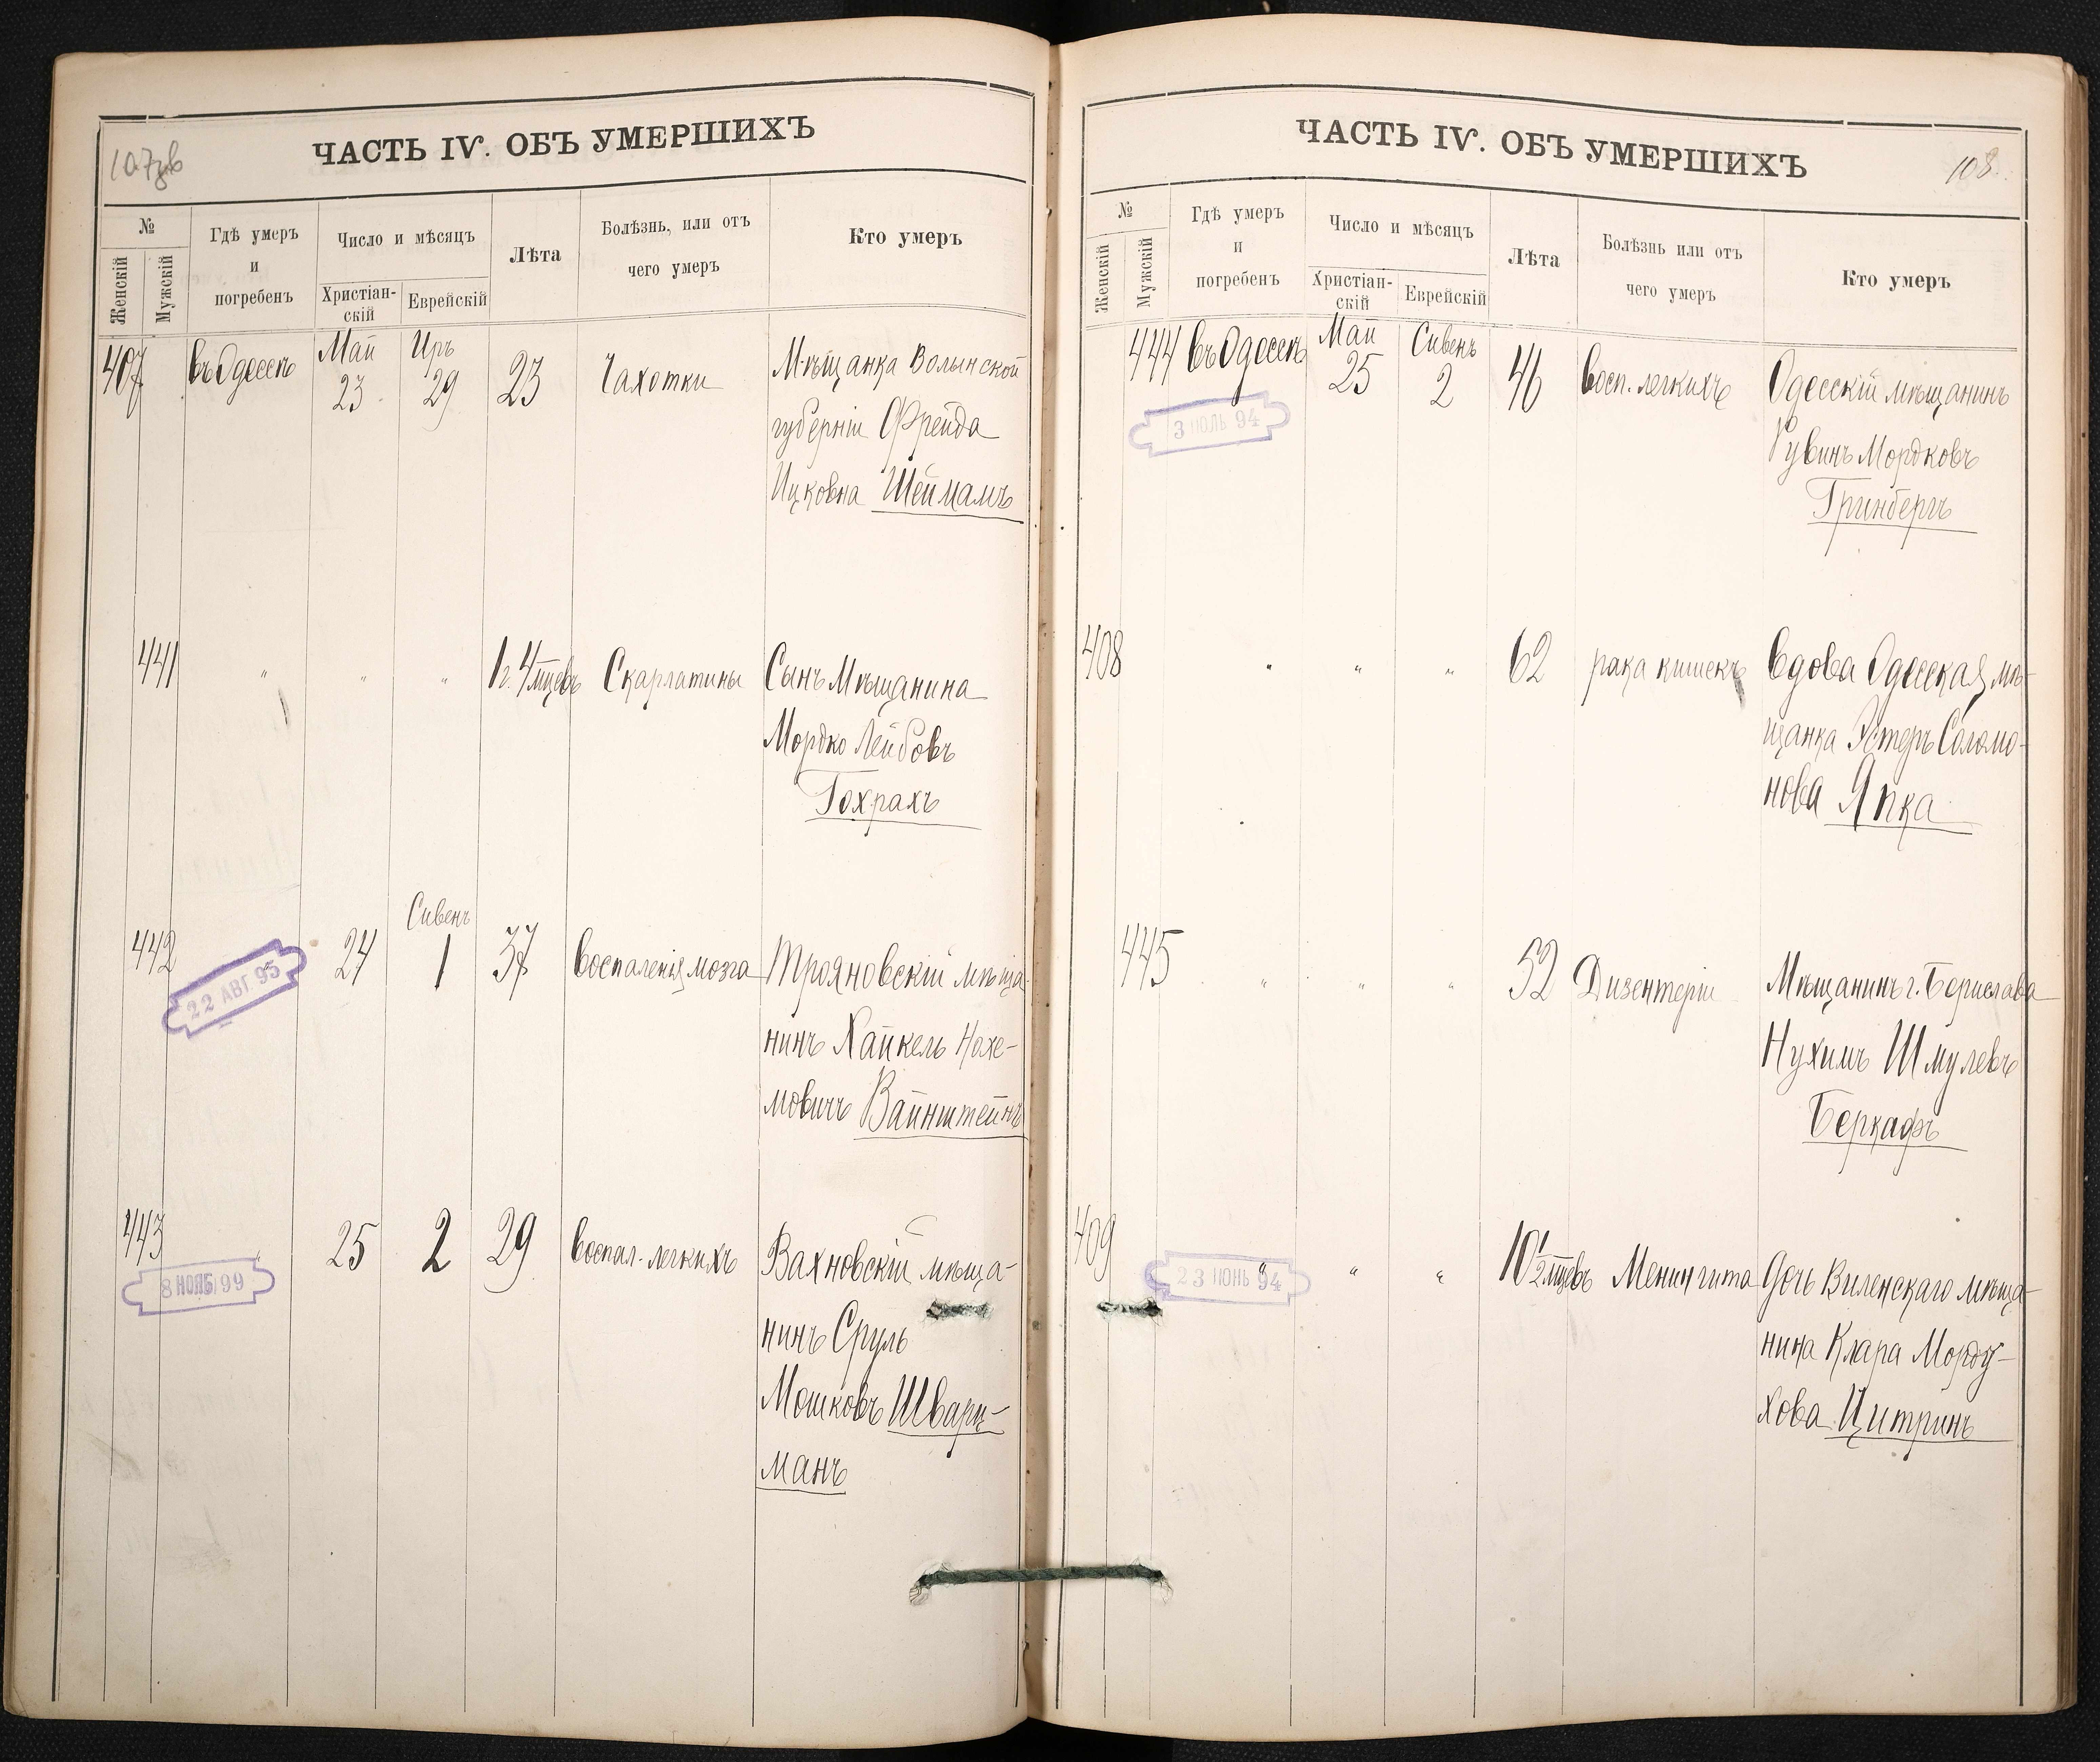 107 об
ЧАСТЬ IV. ОБЪ УМЕРШИХЪ
№
Женскій
Мужскій
Гдѣ умеръ
и
погребенъ
Число и мѣсяцъ
Христіан-
скій
Еврейскій
Лѣта
Болѣзнь, или отъ
чего умеръ
Кто умеръ
407 въ Одессѣ Май 23 Иръ 29 23 Чахотки Мѣщанка Волынской
губерніи Фрейда
Ицковна Шейманъ
441 " " " 1 г. 4 мцевъ Скарлатины Сынъ Мѣщанина
Мордко Лейбовъ
Гохрахъ
442 " 24 Сивенъ 1 37 воспаленія мозга Трояновскій мѣща-
нинъ Хайкель Нохе-
мовичъ Вайнштейнъ
22 АВГ 95
443 " 25 2 29 воспал. легкихъ Вахновскій мѣща-
нинъ Сруль
Мошковъ Шварц-
манъ
8 НОЯБ 99
108.
ЧАСТЬ IV. ОБЪ УМЕРШИХЪ
№
Женскій
Мужскій
Гдѣ умеръ
и
погребенъ
Число и мѣсяцъ
Христіан-
скій
Еврейскій
Лѣта
Болѣзнь или отъ
чего умеръ
Кто умеръ
444 въ Одессѣ Май 25 Сивенъ 2 46 восп. легкихъ Одесскій мѣщанинъ
Рувинъ Мордковъ
Гринбергъ
3 ІЮЛЬ 94
408 " " " 62 рака кишекъ Вдова Одесская мѣ-
щанка Эстеръ Соломо-
нова Япка
445 " " " 52 Дизентеріи Мѣщанинъ г. Борислава
Нухимъ Шмулевъ
Беркафъ
409 " " " 10 1/2 мцевъ Менингита Дочь Виленскаго мѣща-
нина Клара Морду-
хова Цитринъ
23 ІЮНЬ 94